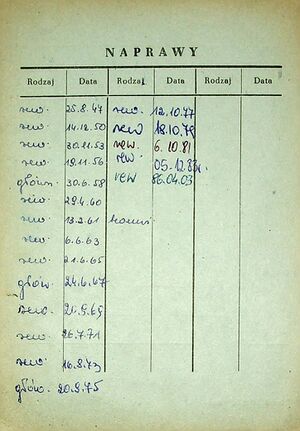 NAPRAWY
Rodzaj Data Rodzaj Data Rodzaj Data
rew. 25.8.47 rew. 12.10.77
rew. 14.12.50 rew 18.10.79
rew. 30.11.53 rew. 6.10.81
rew. 19.11.56 rew. 05.12.83r.
główn. 30.6.58 rew 86.04.03
rew. 29.4.60
rew. 13.2.61
rew. 6.6.63
rew. 21.6.65
głów. 24.6.67
rew. 21.9.69
rew. 26.7.71
rew. 16.8.73
głów. 20.9.75